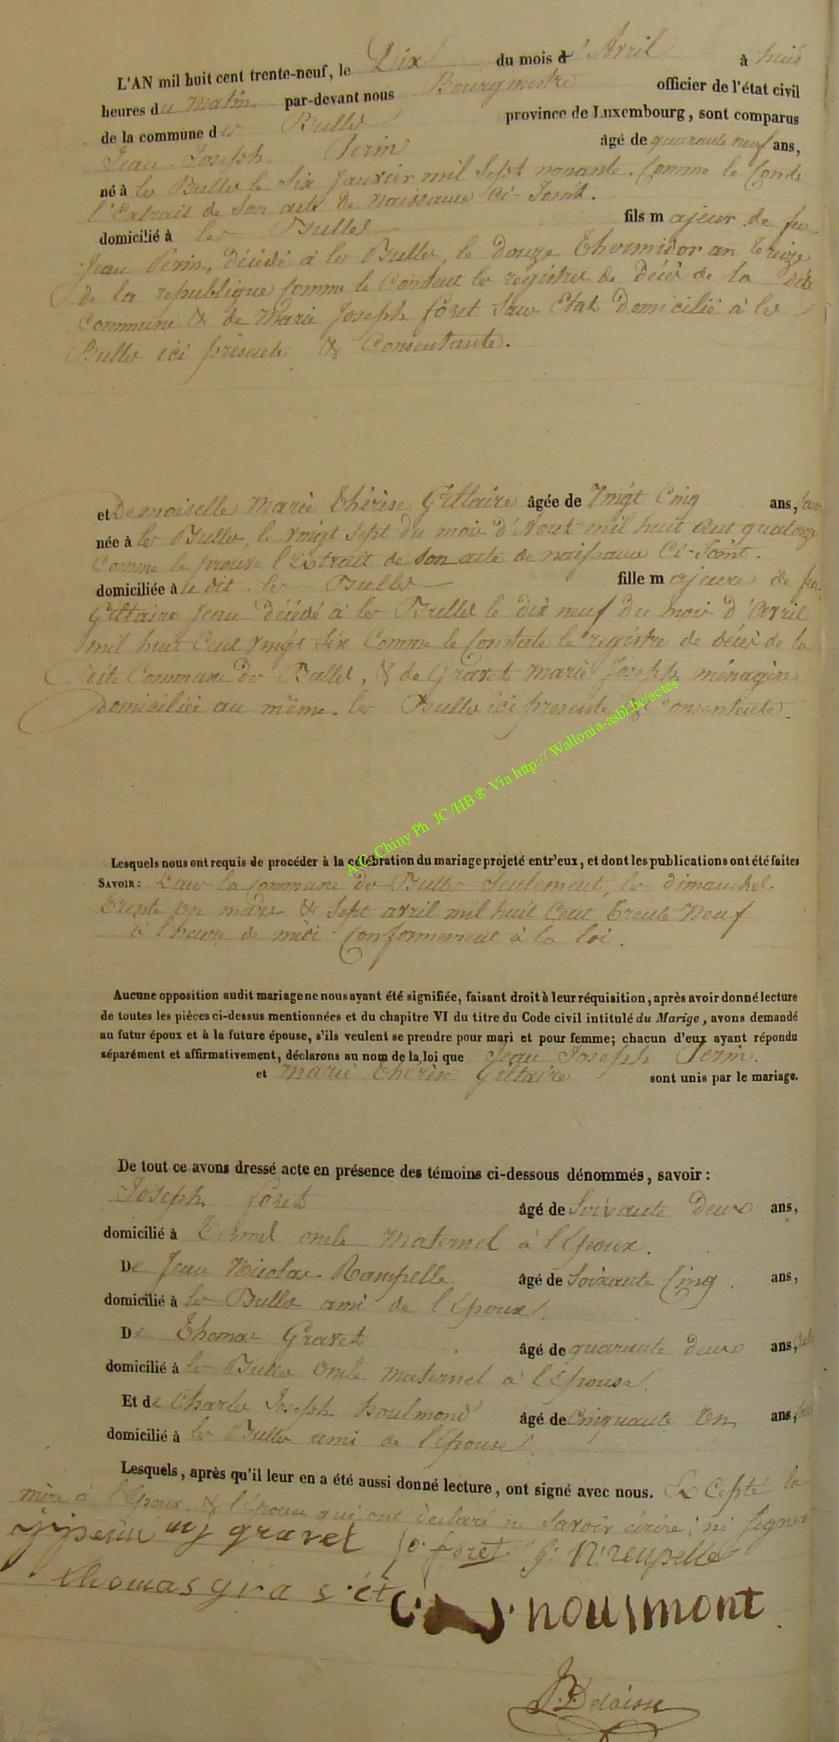 L'AN mil huit cent trente-neuf, le Dix du mois d'Avril à huit
heures du Matin par-devant nous Bourgmestre officier de l'état civil
de la commune des Bulles province de Luxembourg, sont comparus
Jean Joseph Perin âgé de quarante neuf ans,
né à les Bulles le Six Janvier mil Sept nonante. Comme le Constte
l'Extrait de Son acte de naissance Ci-Joint.
domicilié à les Bulles fils majeur de feu
Jean Périn, décédé à les Bulles, le douze thermidor an treize
de la republique Comme le Contient le registre de décès de la dite
Commune & de Marie Joseph foret Sans Etat domicilié à les
Bulles ici présente & Consentante.
et Demoiselle Marie thérèse Gillaire âgée de Vingt Cinq ans,
née à les Bulles, le vingt Sept du mois d'Aout mil huit cent quatorze
Comme le prouve l'Extrait de Son acte de naissance Ci-Joint.
domiciliée à u dit les Bulles fille majeure de feu
Gillaire Jean décédé à les Bulles le dix neuf du mois d'Avril
mil huit Cent vingt Six Comme le Constte le registre de décès de la
dite Commune des Bulles, & de Gravet Marie Joseph ménagère
domiciliée au même. les Bulles ici presente & consentente.
A.G. Chiny Ph. JC/HB® Via http://Wallonia-asbl.be/actes
Lesquels nous ont requis de procéder à la célébration du mariage projeté entr'eux, et dont les publications ont été faites
SAVOIR: Dans la Commune des Bulles Seulement, les dimanches
trente un mars & Sept avril mil huit Cent trente Neuf
à l'heure de midi Conformement à la loi.
Aucune opposition audit mariage ne nous ayant été signifiée, faisant droit à leur réquisition, après avoir donné lecture
de toutes les pièces ci-dessus mentionnées et du chapitre VI du titre du Code civil intitulé du Marige, avons demandé
au futur époux et à la future épouse, s'ils veulent se prendre pour mari et pour femme; chacun d'eux ayant répondu
séparément et affirmativement, déclarons au nom de la loi que Jean Joseph Perin.
et Marie thérèse Gillaire sont unis par le mariage.
De tout ce avons dressé acte en présence des témoins ci-dessous dénommés, savoir:
Joseph foret âgé de Soixante deux ans,
domicilié à oncle maternel à l'Epoux.
De Jean Nicolas Rampelle âgé de Soixante Cinq. ans,
domicilié à les Bulles ami de l'époux.
De Thomas Gravet âgé de quarante deux ans,
domicilié à les Bulles oncle maternel à l'épouse.
Et de Charles Joseph houlmond âgé de Cinquante un ans,
domicilié à les Bulles ami de l'épouse.
Lesquels, après qu'il leur en a été aussi donné lecture, ont signé avec nous. Excepté la
mère à l'époux & l'épouse qui ont declaré ne Savoir écrire, ni Signer
jjperin mj gravet jo. foret j. n. reupelle
thomas gra s'ét c.j. noulmont